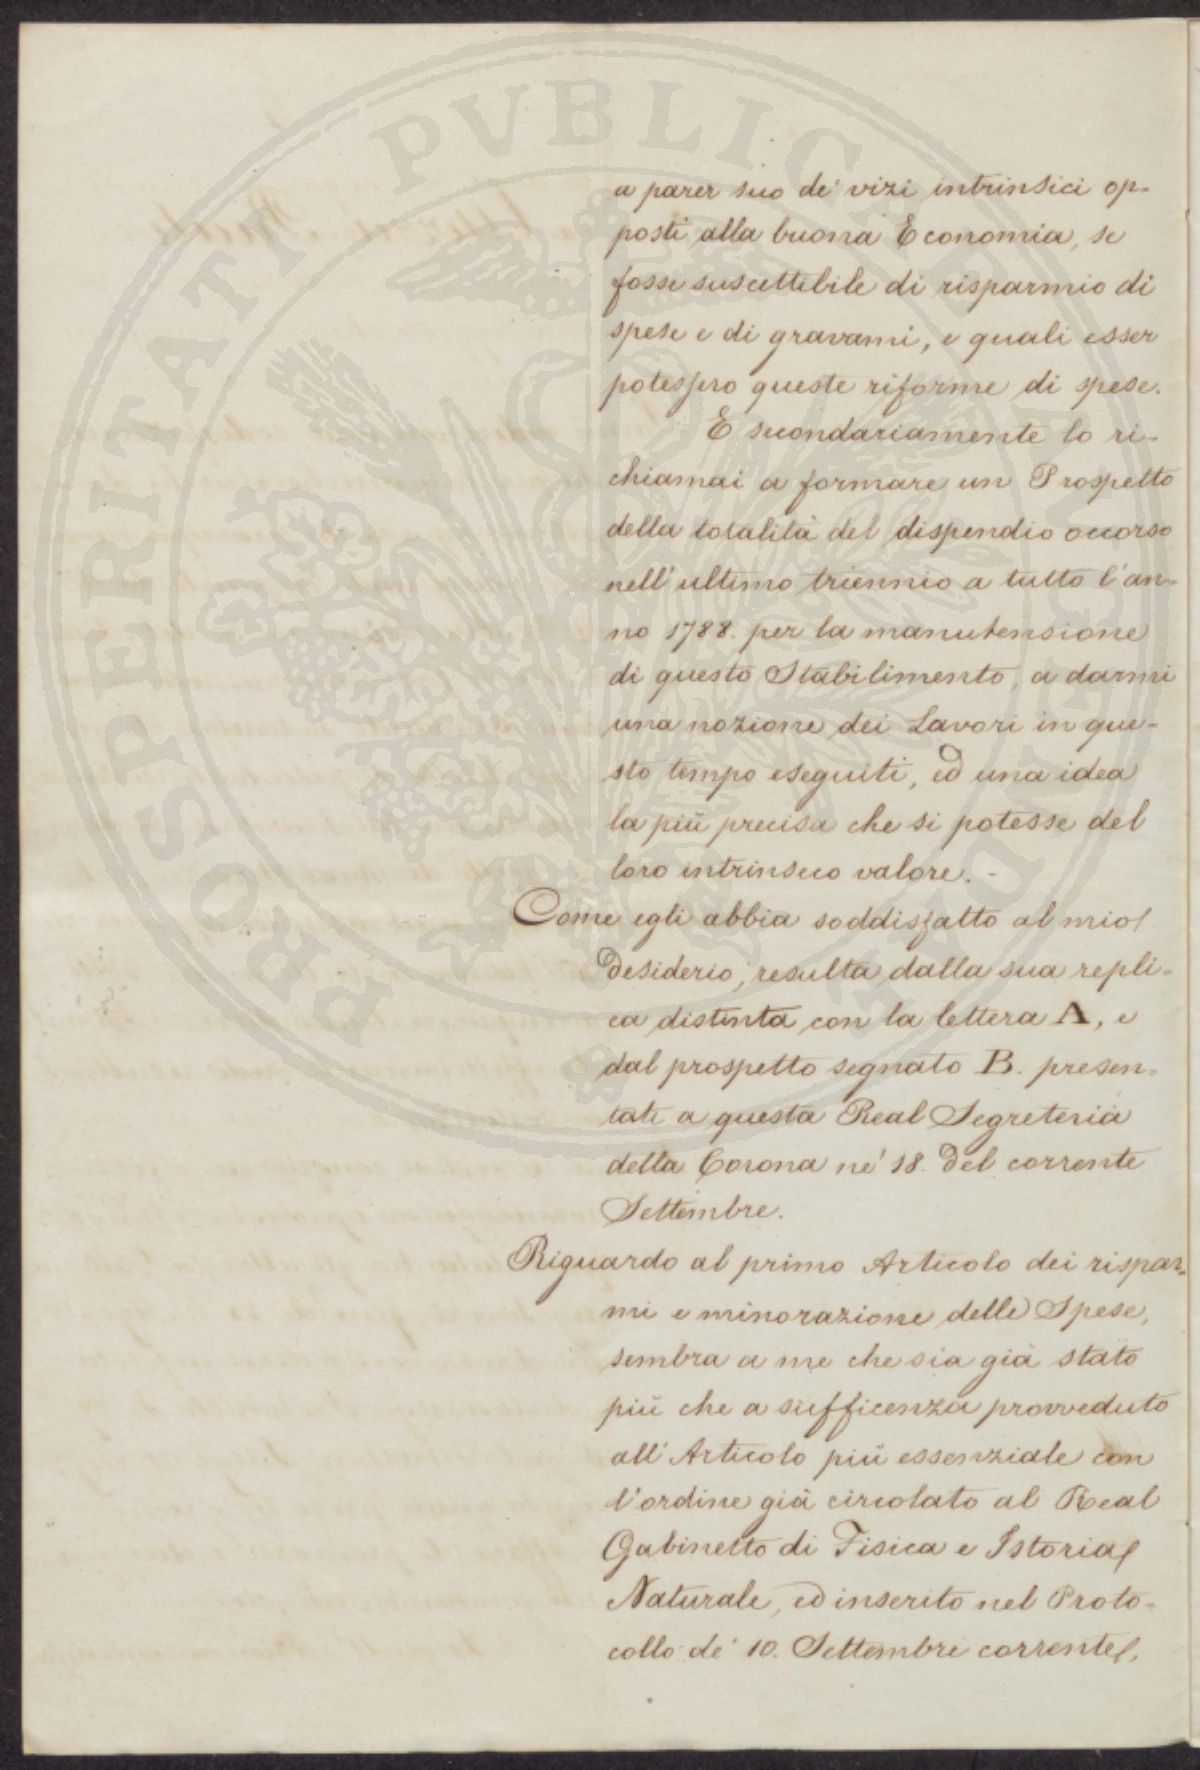 PROSPERITATI PVBLICAE
a parer suo de' vizi intrinsici op-
posti alla buona Economia, se
fosse suscettibile di risparmio di
spese e di gravami, e quali esser
potessero queste riforme di spese.
E secondariamente lo ri-
chiamai a formare un Prospetto
della totalità del dispendio occorso
nell'ultimo triennio a tutto l'an-
no 1788. per la manutensione
di questo Stabilimento, a darmi
una nozione dei Lavori in que-
sto tempo eseguiti, ed una idea
la più precisa che si potesse del
loro intrinseco valore. -
Come egli abbia soddisfatto al mio
Desiderio, resulta dalla sua repli-
ca distinta con la lettera A, e
dal prospetto segnato B. presen-
tati a questa Real Segreteria
della Corona ne' 18. del corrente
Settembre.
Riguardo al primo Articolo dei rispar-
mi e minorazione delle Spese,
sembra a me che sia già stato
più che a sufficenza provveduto
all'Articolo più essenziale con
l'ordine già circolato al Real
Gabinetto di Fisica e Istoria
Naturale, ed inserito nel Proto-
collo de' 10. Settembre corrente,